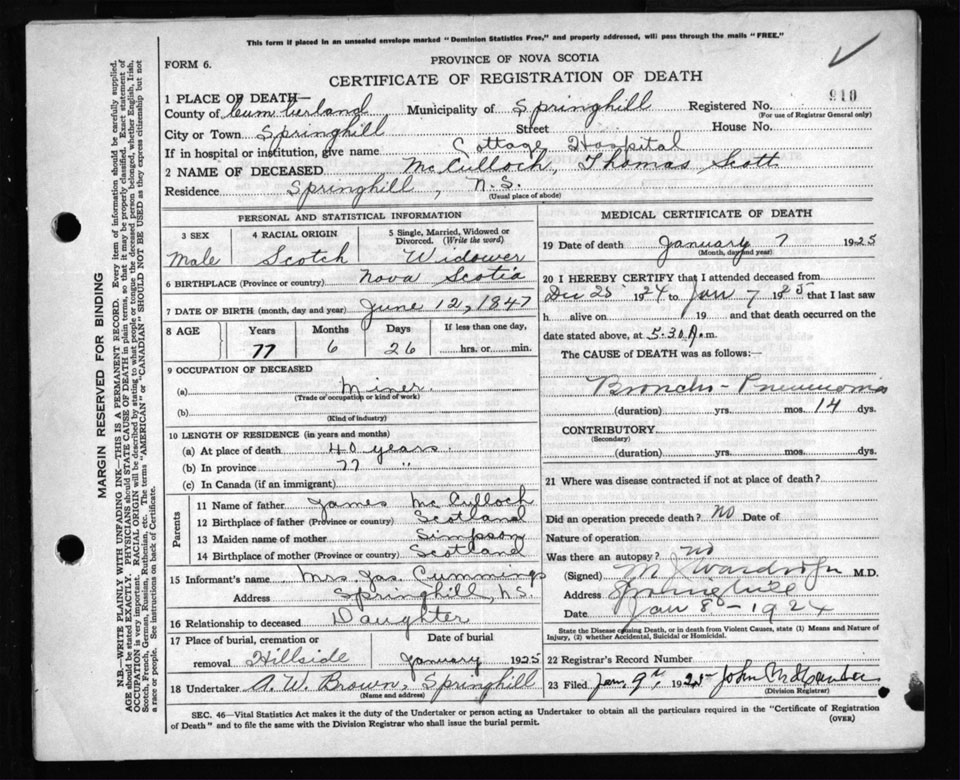 This form if placed in an unsealed envelope marked "Dominion Statistics Free," and properly addressed, will pass through the mails "FREE."
FORM 6.
PROVINCE OF NOVA SCOTIA
CERTIFICATE OF REGISTRATION OF DEATH
1 PLACE OF DEATH—
County of Cumberland Municipality of Springhill Registered No. 910
(For use of Registrar General only)
City or Town Springhill Street House No.
If in hospital or institution, give name Cottage Hospital
2 NAME OF DECEASED McCulloch, Thomas Scott
Residence Springhill, N.S.
(Usual place of abode)
PERSONAL AND STATISTICAL INFORMATION
3 SEX 4 RACIAL ORIGIN 5 Single, Married, Widowed or Divorced. (Write the word)
Male Scotch Widower
6 BIRTHPLACE (Province or country) Nova Scotia
7 DATE OF BIRTH (month, day and year) June 12, 1847
8 AGE Years Months Days If less than one day,
77 6 26 hrs. or min.
9 OCCUPATION OF DECEASED
(a) Miner.
(Trade or occupation or kind of work)
(b)
(Kind of industry)
10 LENGTH OF RESIDENCE (in years and months)
(a) At place of death 40 years.
(b) In province 77 "
(c) In Canada (if an immigrant)
Parents
11 Name of father James McCulloch
12 Birthplace of father (Province or country) Scotland
13 Maiden name of mother Simpson
14 Birthplace of mother (Province or country) Scotland
15 Informant's name Mrs. Jas. Cummings
Address Springhill, N.S.
16 Relationship to deceased Daughter
17 Place of burial, cremation or Date of burial
removal Hillside January 1925
18 Undertaker A. W. Brown, Springhill
(Name and address)
MEDICAL CERTIFICATE OF DEATH
19 Date of death January 7 1925
(Month, day and year)
20 I HEREBY CERTIFY that I attended deceased from
Dec 25 1924 to Jan 7 1925 that I last saw
h alive on 19 and that death occurred on the
date stated above, at 5.30 A.m.
The CAUSE of DEATH was as follows:
Broncho-Pneumonia
(duration) yrs. mos. 14 dys.
CONTRIBUTORY
(Secondary)
(duration) yrs. mos. dys.
21 Where was disease contracted if not at place of death?
Did an operation precede death? No Date of
Nature of operation
Was there an autopsy? No
(Signed) M. J. Wardrope M.D.
Address Springhill
Date Jan 8 - 1924
State the Disease causing Death, or in death from Violent Causes, state (1) Means and Nature of
Injury, (2) whether Accidental, Suicidal or Homicidal.
22 Registrar's Record Number
23 Filed Jan. 9th, 1925 John
(Division Registrar)
SEC. 46—Vital Statistics Act makes it the duty of the Undertaker or person acting as Undertaker to obtain all the particulars required in the "Certificate of Registration
of Death" and to file the same with the Division Registrar who shall issue the burial permit.
(OVER)
MARGIN RESERVED FOR BINDING
N.B.—WRITE PLAINLY WITH UNFADING INK—THIS IS A PERMANENT RECORD. Every item of information should be carefully supplied.
AGE should be stated EXACTLY. PHYSICIANS should STATE CAUSE OF DEATH in plain terms, so that it may be properly classified. Exact statement of
OCCUPATION is very important. RACIAL ORIGIN will be described by stating to what people or tongue the deceased person belonged, whether English, Irish,
Scotch, French, German, Russian, Ruthenian, etc. The terms "AMERICAN" or "CANADIAN" SHOULD NOT BE USED as they express citizenship but not
a race or people. See instructions on back of Certificate.